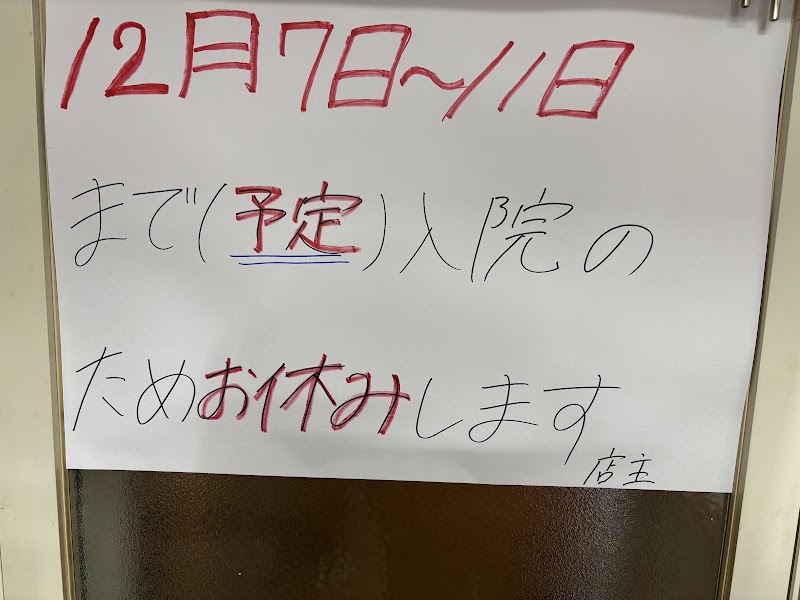 12月7日~11日
まで(予定)入院の
ためお休みします
店主